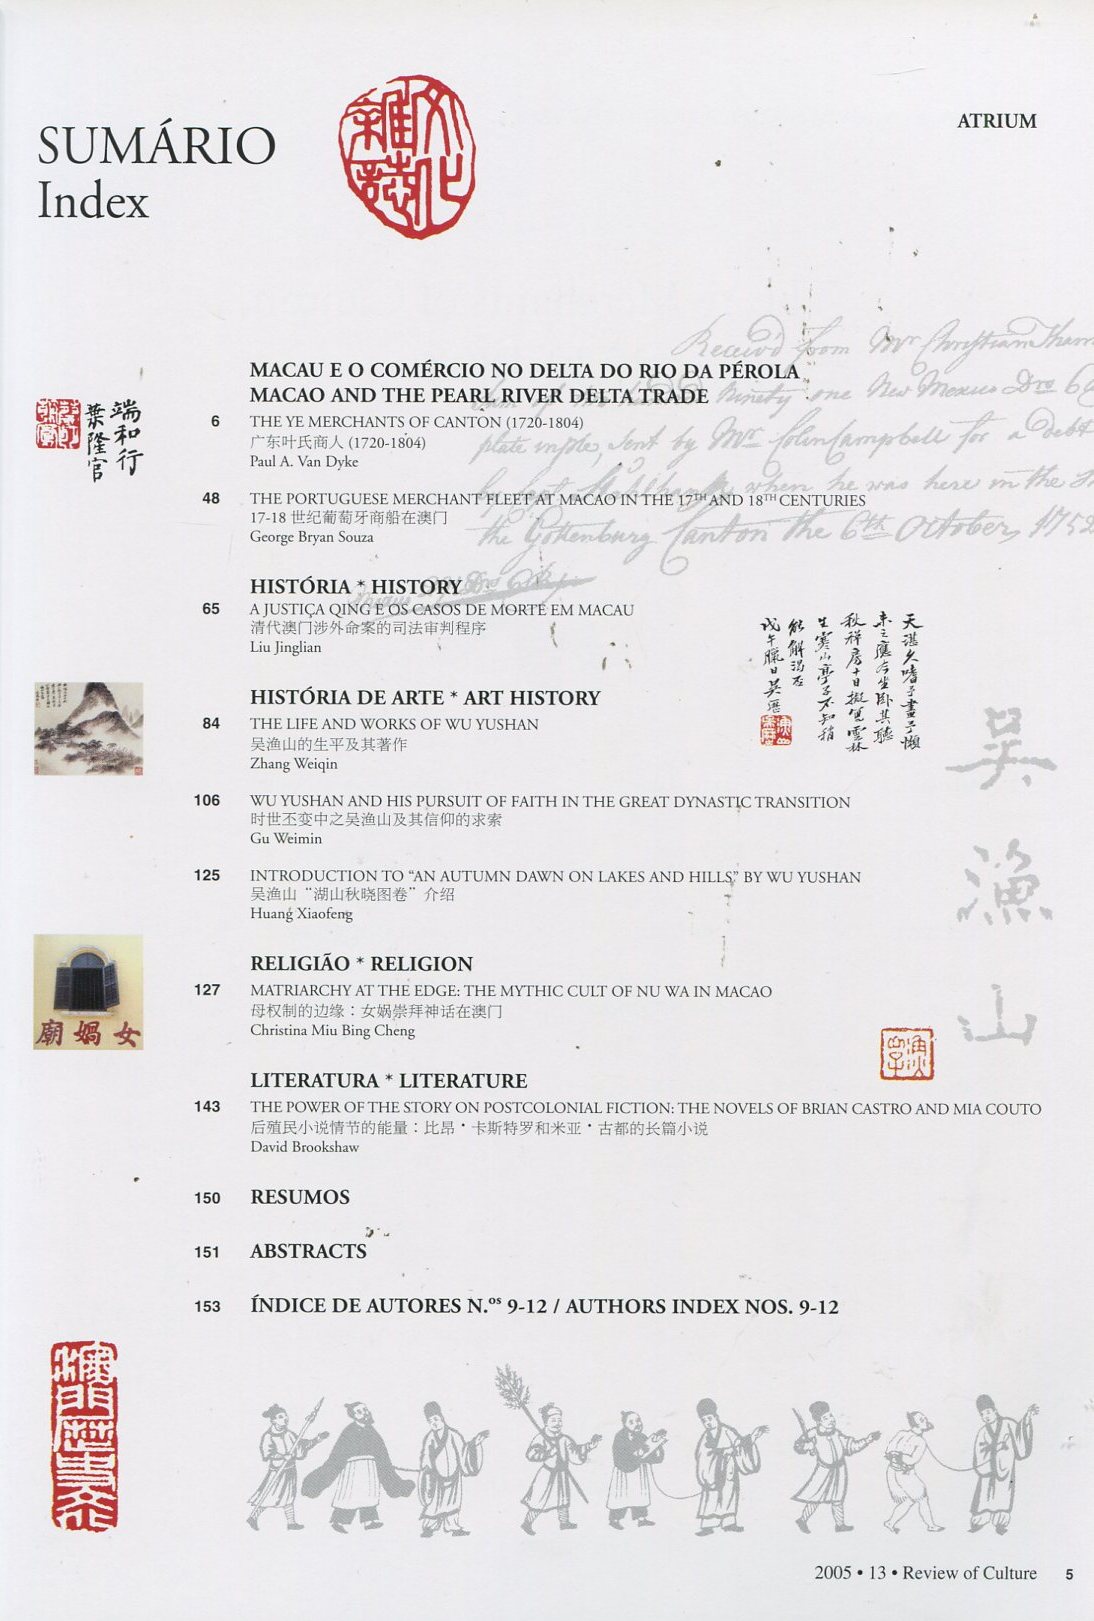 SUMÁRIO
Index
文化
雜誌
ATRIUM
Received from Mr Christian
Ninety one New Mexico Drs
plate in specie, sent by Mr Colin Campbell for a debt
when he was here in the
the Gottenburg Canton the 6th October, 1752
MACAU E O COMÉRCIO NO DELTA DO RIO DA PÉROLA
MACAO AND THE PEARL RIVER DELTA TRADE
端和行
葉隆官
6 THE YE MERCHANTS OF CANTON (1720-1804)
广东叶氏商人 (1720-1804)
Paul A. Van Dyke
48 THE PORTUGUESE MERCHANT FLEET AT MACAO IN THE 17TH AND 18TH CENTURIES
17-18 世纪葡萄牙商船在澳门
George Bryan Souza
HISTÓRIA * HISTORY
65 A JUSTIÇA QING E OS CASOS DE MORTE EM MACAU
清代澳门涉外命案的司法审判程序
Liu Jinglian
天湛久嗜予畫予懶
未之應今坐臥其聽
秋祥房十日擬寬雲林
生寒山亭子不知稍
能解渴否
戊午臘日吳歷
HISTÓRIA DE ARTE * ART HISTORY
84 THE LIFE AND WORKS OF WU YUSHAN
吴渔山的生平及其著作
Zhang Weiqin
106 WU YUSHAN AND HIS PURSUIT OF FAITH IN THE GREAT DYNASTIC TRANSITION
时世丕变中之吴渔山及其信仰的求索
Gu Weimin
125 INTRODUCTION TO “AN AUTUMN DAWN ON LAKES AND HILLS” BY WU YUSHAN
吴渔山“湖山秋晓图卷”介绍
Huang Xiaofeng
吴漁山
RELIGIÃO * RELIGION
127 MATRIARCHY AT THE EDGE: THE MYTHIC CULT OF NU WA IN MACAO
母权制的边缘：女娲崇拜神话在澳门
Christina Miu Bing Cheng
廟媧女
LITERATURA * LITERATURE
143 THE POWER OF THE STORY ON POSTCOLONIAL FICTION: THE NOVELS OF BRIAN CASTRO AND MIA COUTO
后殖民小说情节的能量：比昂·卡斯特罗和米亚·古都的长篇小说
David Brookshaw
150 RESUMOS
151 ABSTRACTS
153 ÍNDICE DE AUTORES N.os 9-12 / AUTHORS INDEX NOS. 9-12
2005 • 13 • Review of Culture 5